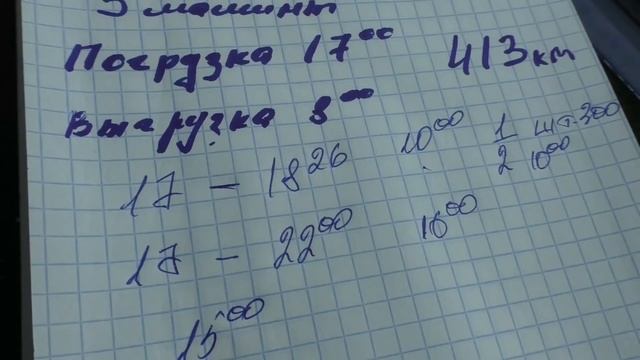 3 машины
Погрузка 17⁰⁰ 413 км
Выгрузка 8⁰⁰
17 - 18²⁶ 10⁰⁰ 1 шт. 300
2 10⁰⁰
17 - 22⁰⁰ 16⁰⁰
15⁰⁰